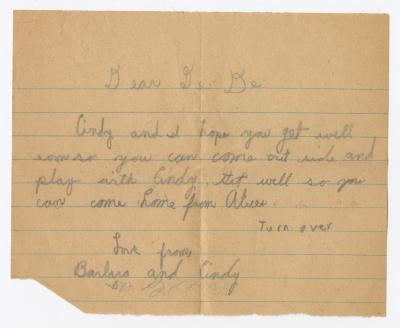 Dear De De
Cindy and I hope you get well
soon so you can come out side and
play with Cindy. Get well so you
can come home from Alices.
Turn over
Love from,
Barbara and Cindy